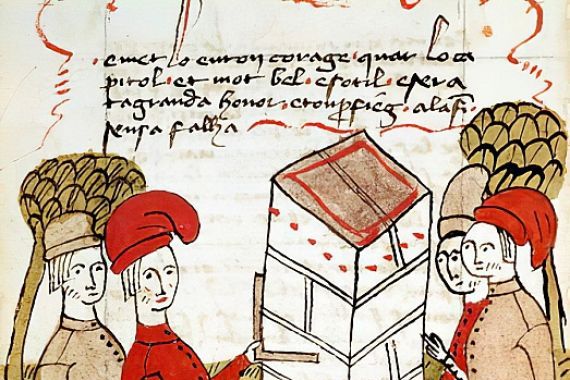 emet lo enton corage · quar loca
pitol · et mot bel · esotil · esera
ta granda honor · eton pfieg · alafi ·
sensa falha